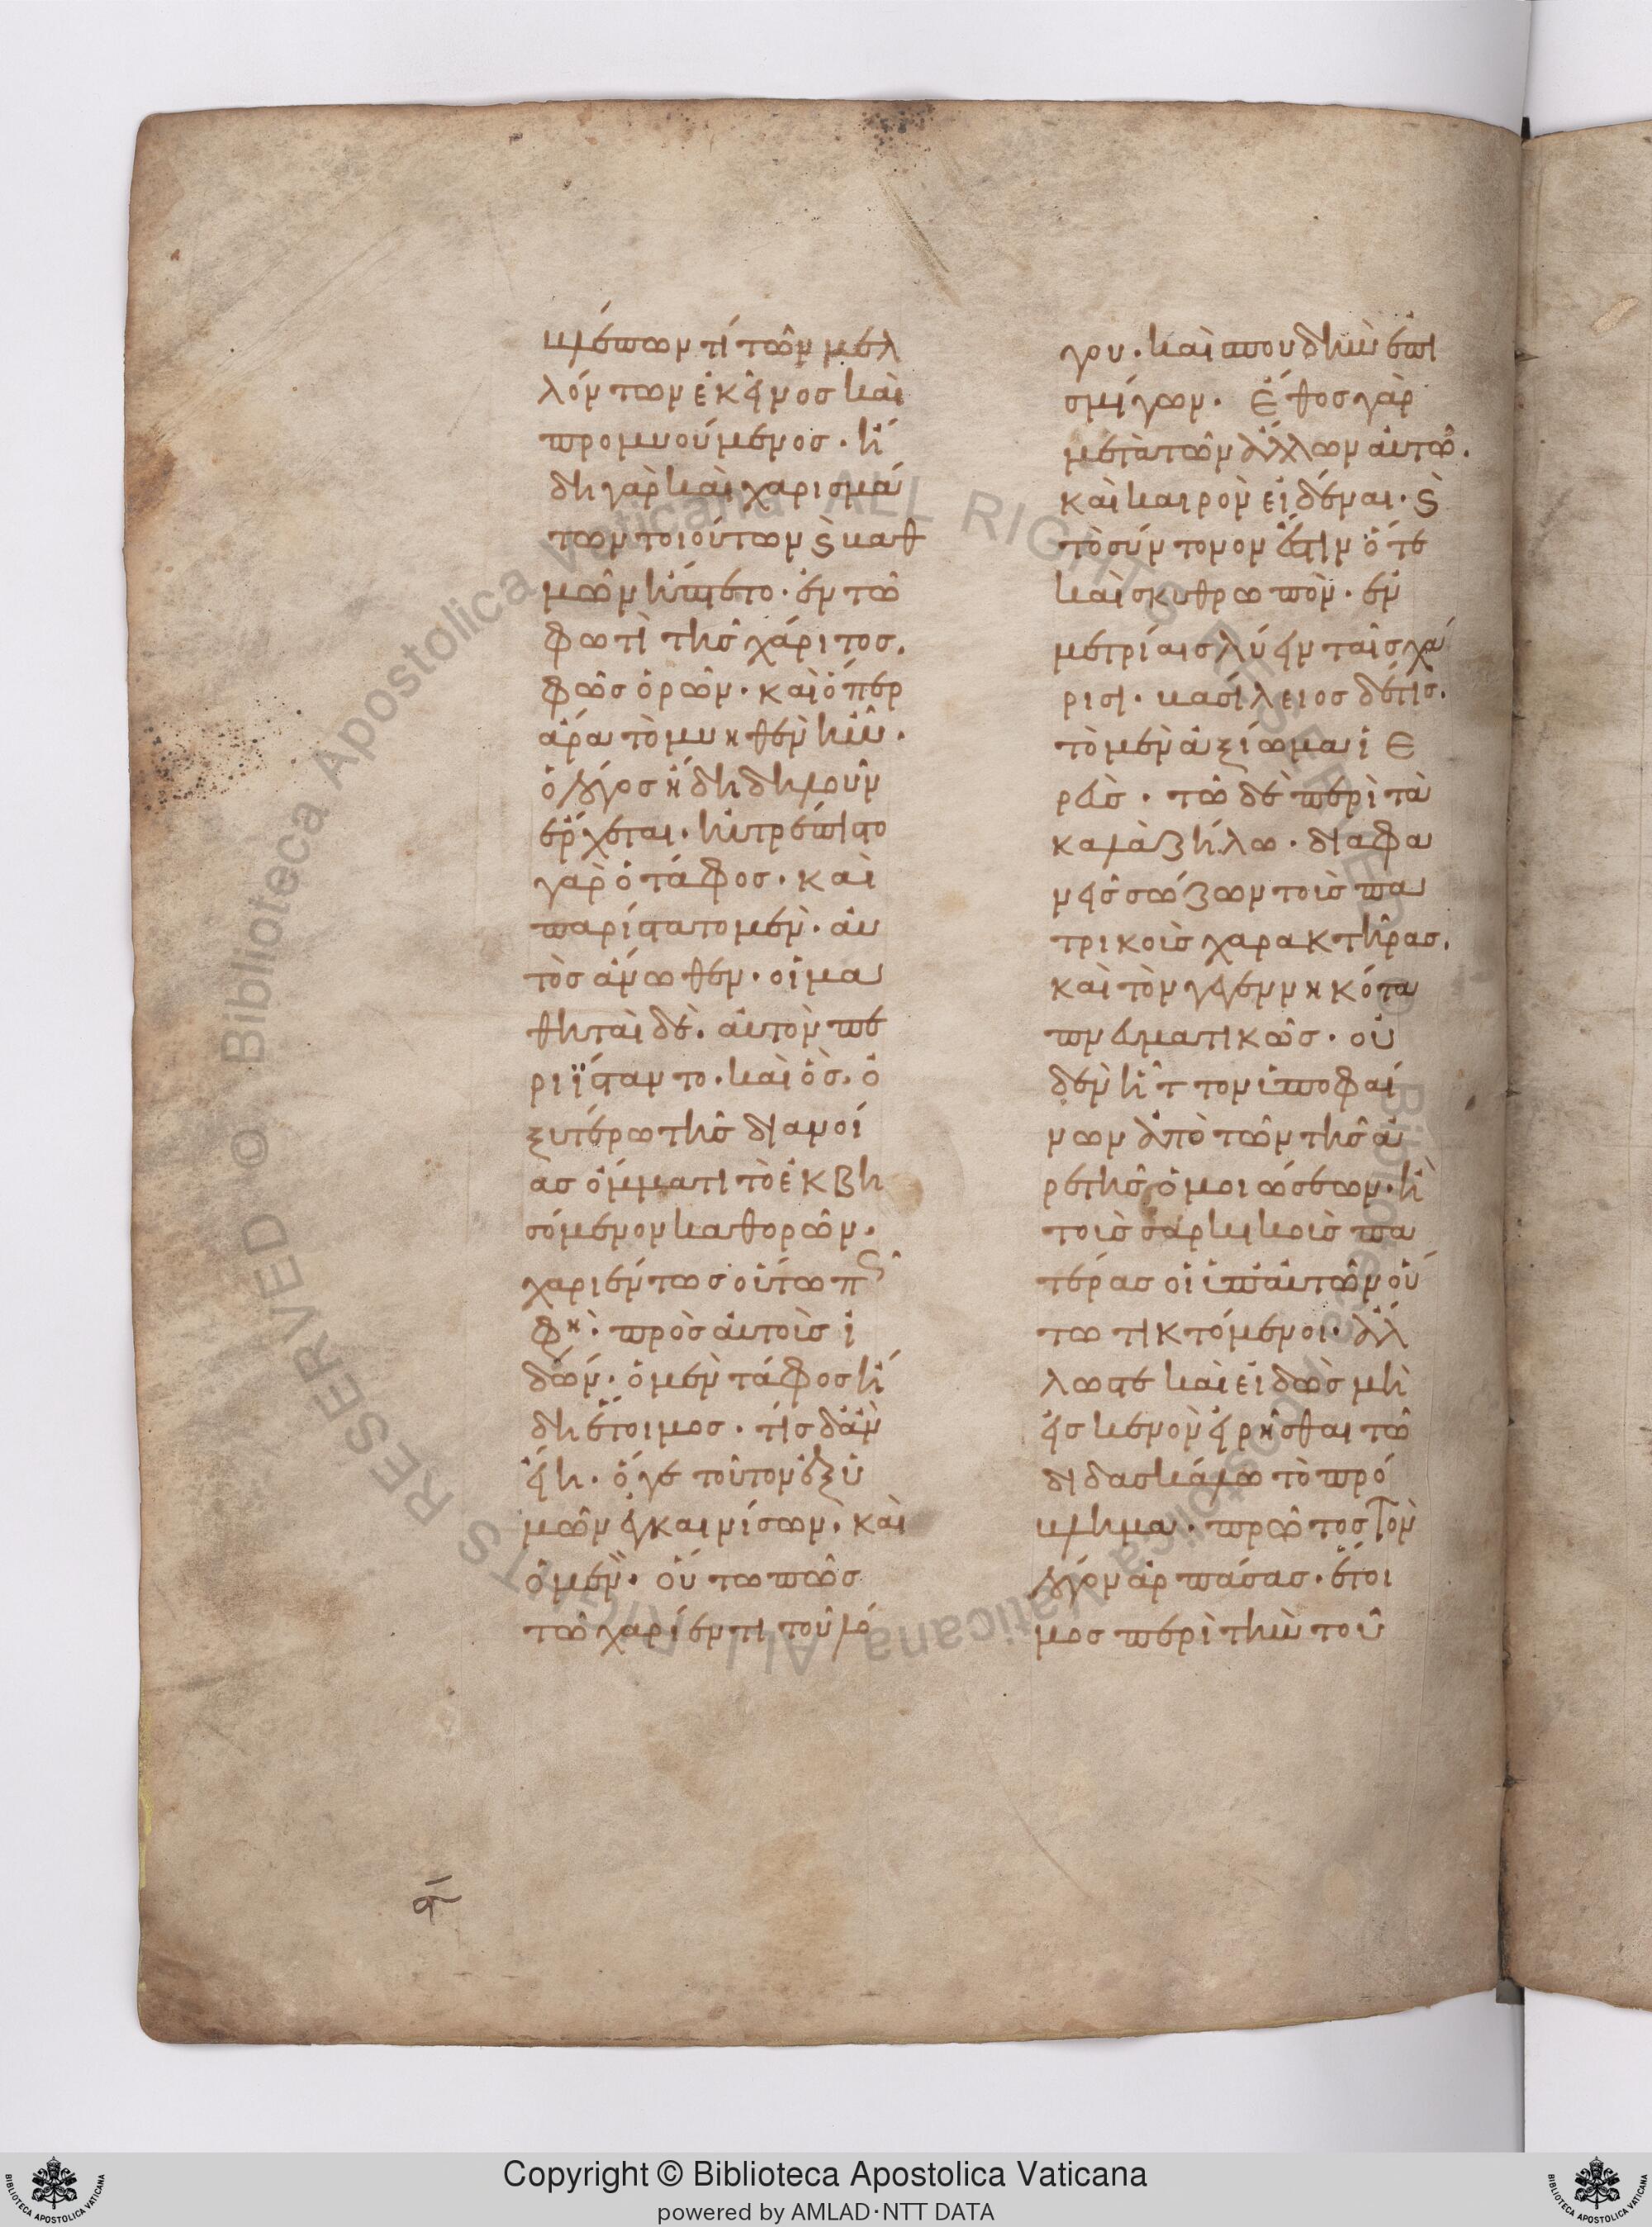 βλέπων τί τῶν μελ
λόντων ἐκεῖνος καὶ
προμνούμενος. ἤ
δη γὰρ καὶ χαρισμά
των τοιούτων ὁ κλθ
μῶν ἥπτετο. ἐν τῶ
φωτὶ τῆς χάριτος.
φῶς ὁρῶν. καὶ ὅπερ
ἄρα τὸ μυηθὲν ἦν.
ὁ λόγος ἤδη δηλοῦν
ἔρχεται. ηὐτρέπιστο
γὰρ ὁ τάφος. καὶ
παρίστατο μὲν. αὐ
τὸς ἄνωθεν. οἱ μα
θηταὶ δὲ. αὐτὸν πε
ριΐσταντο. καὶ ὃς. ὀ
ξυτέρω τῆς διανοί
ας ὄμματι τὸ ἐκβη
σόμενον καθορῶν.
χαριέντως οὕτω π
φη. πρὸς αὐτοὺς ἰ
δών. ὁ μὲν τάφος ἤ
δη ἕτοιμος. τίς δ' ἂν
εἴη. ὅγε τοῦτον ἐξ ὑ
μῶν ἐγκαινίσων. καὶ
ὁ μὲν. οὕτω πῶς
τῶ χαρίεντι τοῦ λό
γου. καὶ σπουδὴν ἐπι
σμίγων. Ἔθος γὰρ
μετὰ τῶν ἄλλων αὐτῶ.
καὶ καιρὸν εἰδέναι. ς
τὸ σύντονον ἔστιν ὅτε
καὶ σκυθρωπὸν. ἐν
μετρίαις λύειν ταῖς χά
ρισι. βασίλειος δέ τις.
τὸ μὲν ἀξίωμα ἱε
ρεὺς. τῶ δὲ περὶ τὰ
καλὰ ζήλω. διαφα
νεῖς σώζων τοὺς πα
τρικοὺς χαρακτῆρας.
καὶ τὸν γεγεννηκότα
πνευματικῶς. οὐ
δὲν ἧττον ὑποφαί
νων ἀπὸ τῶν τῆς ἀ
ρετῆς ὁμοιώσεων. ἢ
τοὺς σαρκικοὺς πα
τέρας οἱ ὑπ' αὐτῶν οὕ
τω τικτόμενοι. ἄλ
λωστε καὶ εἰδὼς μὴ
εἰς κενὸν εἰρῆσθαι τῶ
διδασκάλω τὸ πρό
βλημα. πρῶτος τὸν
λόγον ἁρπάσας. ἕτοι
μος περὶ τὴν τοῦ
Copyright © Biblioteca Apostolica Vaticana
powered by AMLAD·NTT DATA